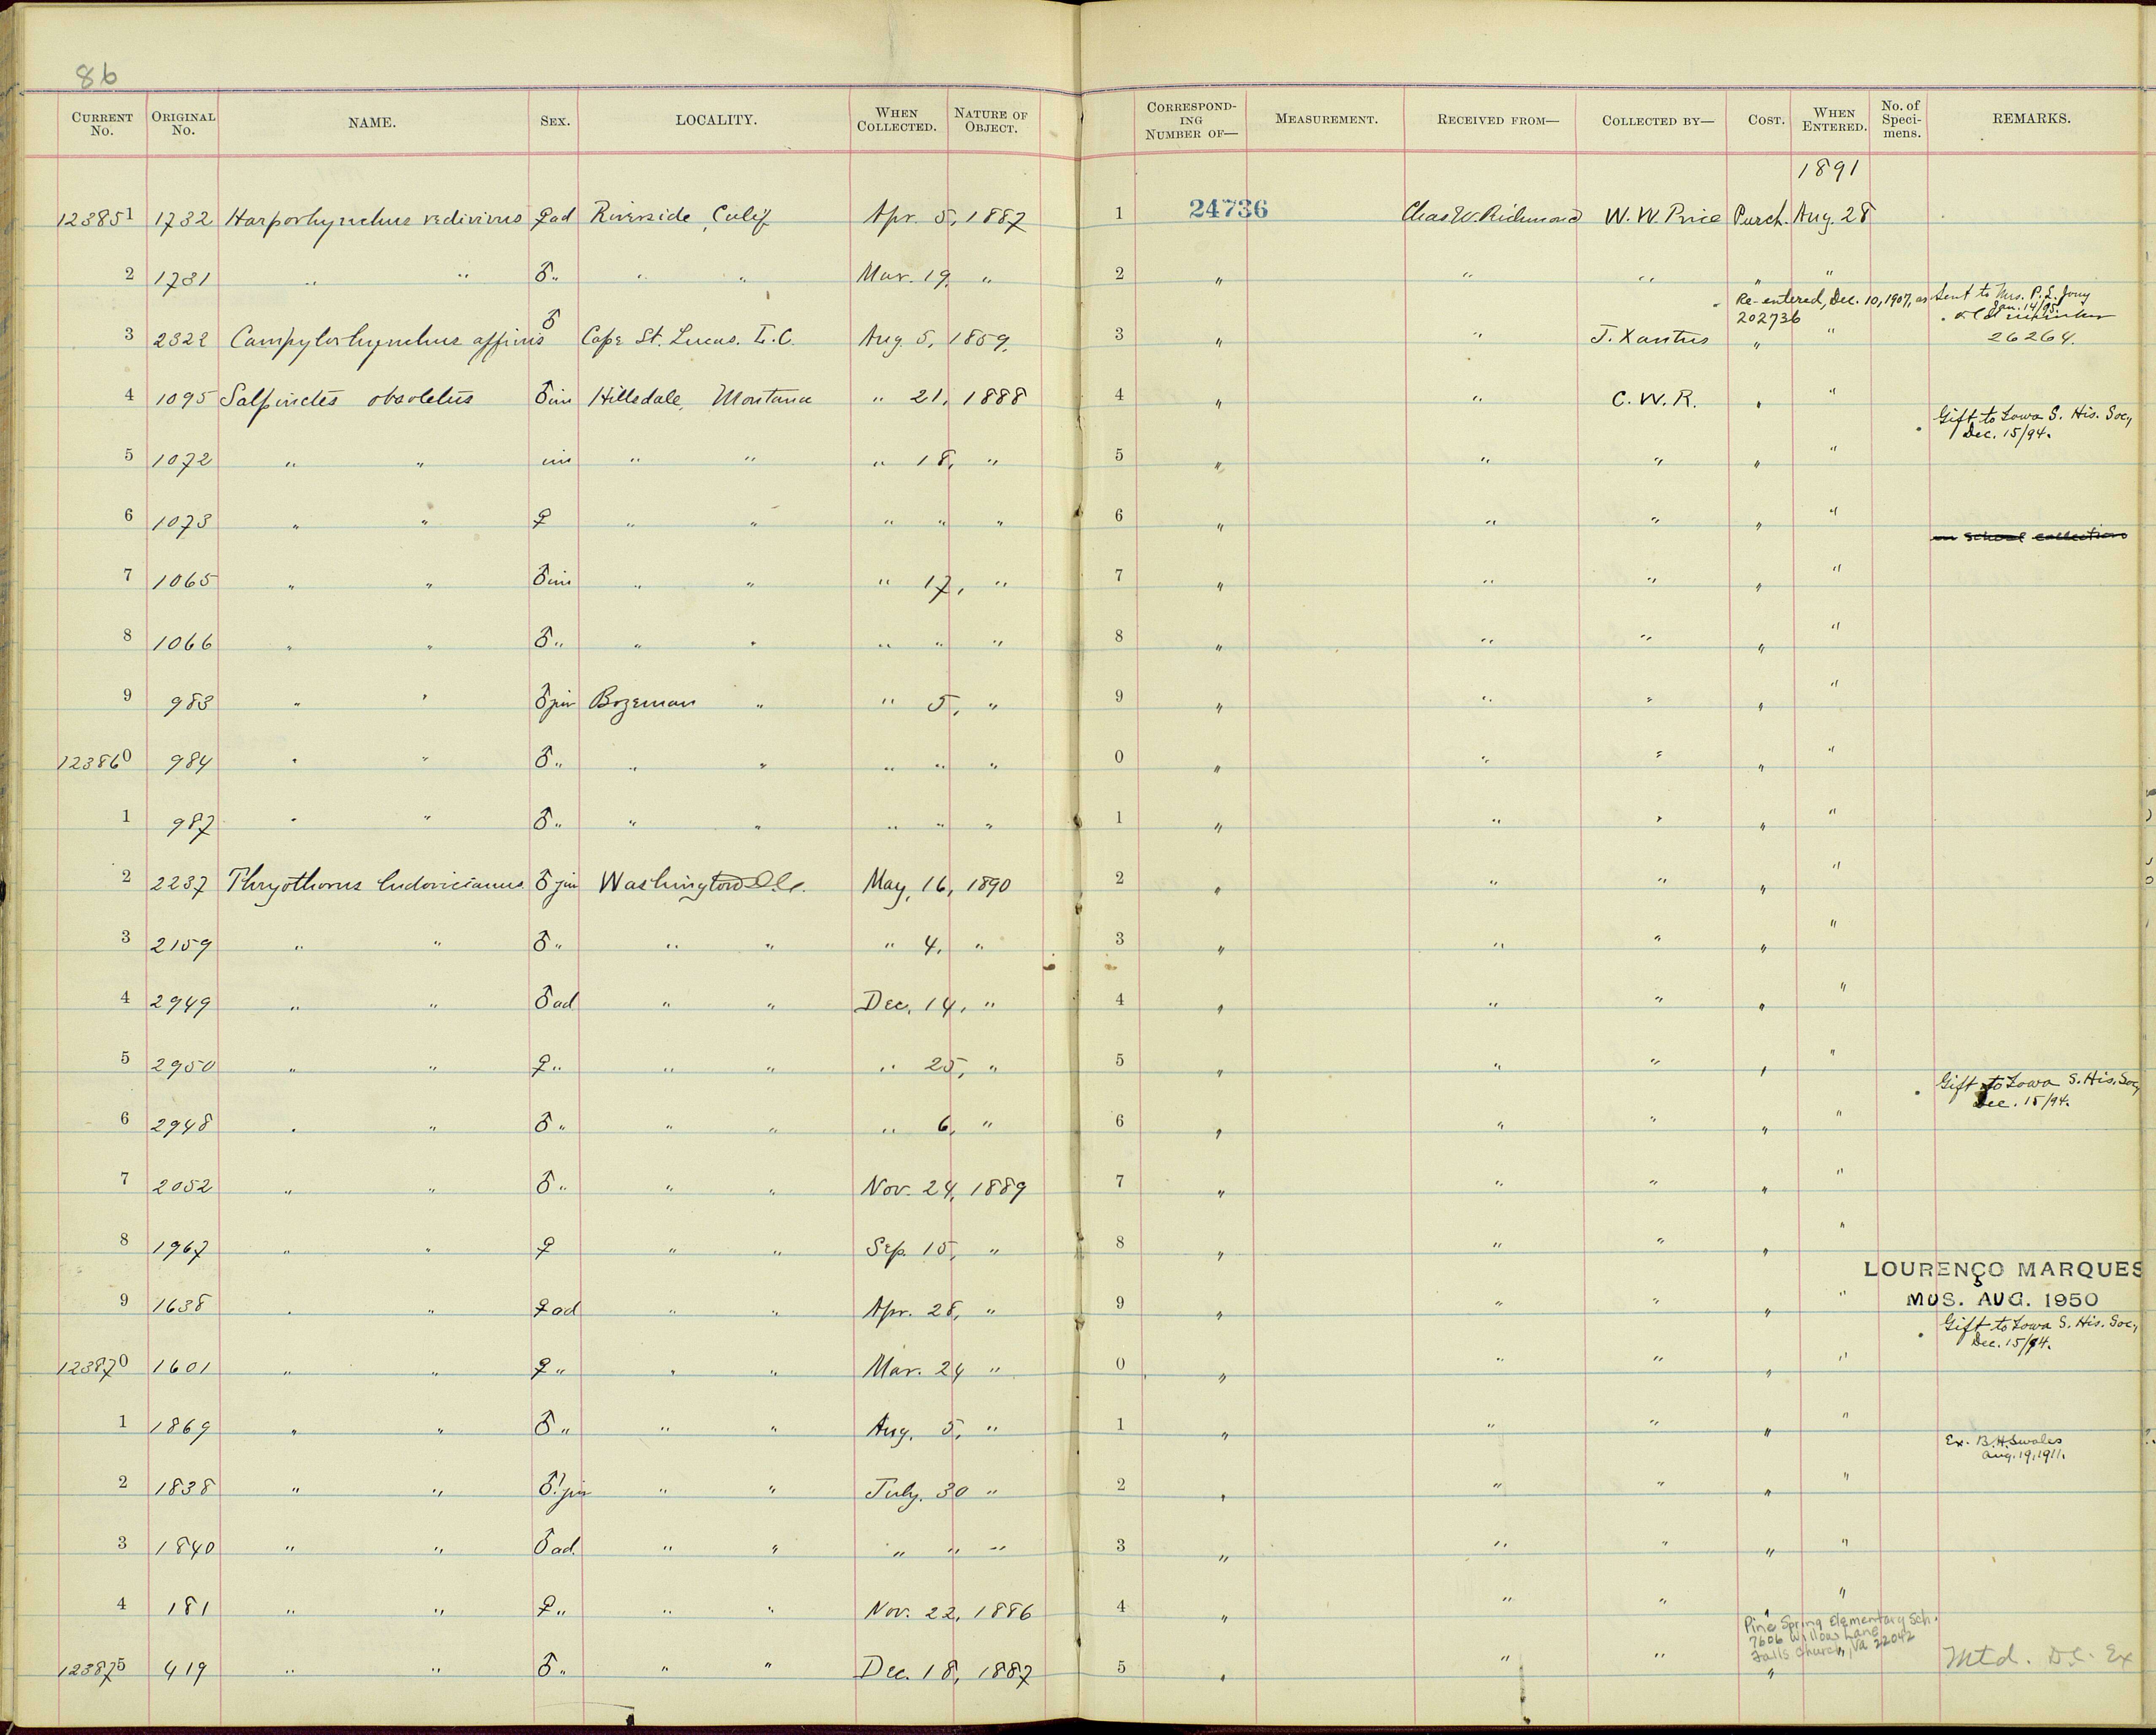 86
CURRENT No. ORIGINAL No. NAME. SEX. LOCALITY. WHEN COLLECTED. NATURE OF OBJECT. CORRESPONDING NUMBER OF— MEASUREMENT. RECEIVED FROM— COLLECTED BY— COST. WHEN ENTERED. No. of Specimens. REMARKS.
1891
123851 1732 Harporhynchus redivivus ♀ad Riverside, Calif Apr. 5, 1887 1 24736 Chas W. Richmond W. W. Price Purch. Aug. 28
2 1731 " " ♂" " " Mar. 19, " 2 " " " " "
Re-entered, Dec. 10, 1907, as 202736
Sent to Mrs. P. L. Jouy Jan. 14/95.
3 2322 Campylorhynchus affinis ♂ Cape St. Lucas. L.C. Aug 5, 1859. 3 " " J. Xantus " " old number 26264.
4 1095 Salpinctes obsoletus ♂im Hillsdale, Montana " 21, 1888 4 " " C. W. R. " "
Gift to Iowa S. His. Soc, Dec. 15/94.
5 1072 " " im " " " 18, " 5 " " " " "
6 1073 " " ♀ " " " " " 6 " " " " "
in school collection
7 1065 " " ♂im " " " 17, " 7 " " " " "
8 1066 " " ♂" " " " " " 8 " " " " "
9 983 " " ♂juv Bozeman " " 5, " 9 " " " " "
123860 984 " " ♂" " " " " " 0 " " " " "
1 987 " " ♂" " " " " " 1 " " " " "
2 2237 Thryothorus ludovicianus ♂ juv Washington D.C. May, 16, 1890 2 " " " " "
3 2159 " " ♂" " " " 4, " 3 " " " " "
4 2949 " " ♂ad " " Dec. 14, " 4 " " " " "
5 2950 " " ♀" " " " 25, " 5 " " " " "
Gift to Iowa S. His. Soc, Dec. 15/94.
6 2948 " " ♂" " " " 6, " 6 " " " " "
7 2052 " " ♂" " " Nov. 24, 1889 7 " " " " "
8 1967 " " ♀ " " Sep. 15, " 8 " " " " "
LOURENÇO MARQUES
MUS. AUG. 1950
9 1638 " " ♀ad " " Apr. 28, " 9 " " " " "
Gift to Iowa S. His. Soc, Dec. 15/94.
123870 1601 " " ♀" " " Mar. 24 " 0 " " " " "
1 1869 " " ♂" " " Aug. 5, " 1 " " " " "
Ex. B.H. Swales
Aug. 19, 1911.
2 1838 " " ♂! juv " " July. 30 " 2 " " " " "
3 1840 " " ♂ad. " " " " " 3 " " " " "
4 181 " " ♀" " " Nov. 22, 1886 4 " " " " "
Pine Spring Elementary Sch.
7606 Willow Lane
Falls Church, VA 22042
123875 419 " " ♂" " " Dec. 18, 1887 5 " " " " " Mtd. D.C. Ex